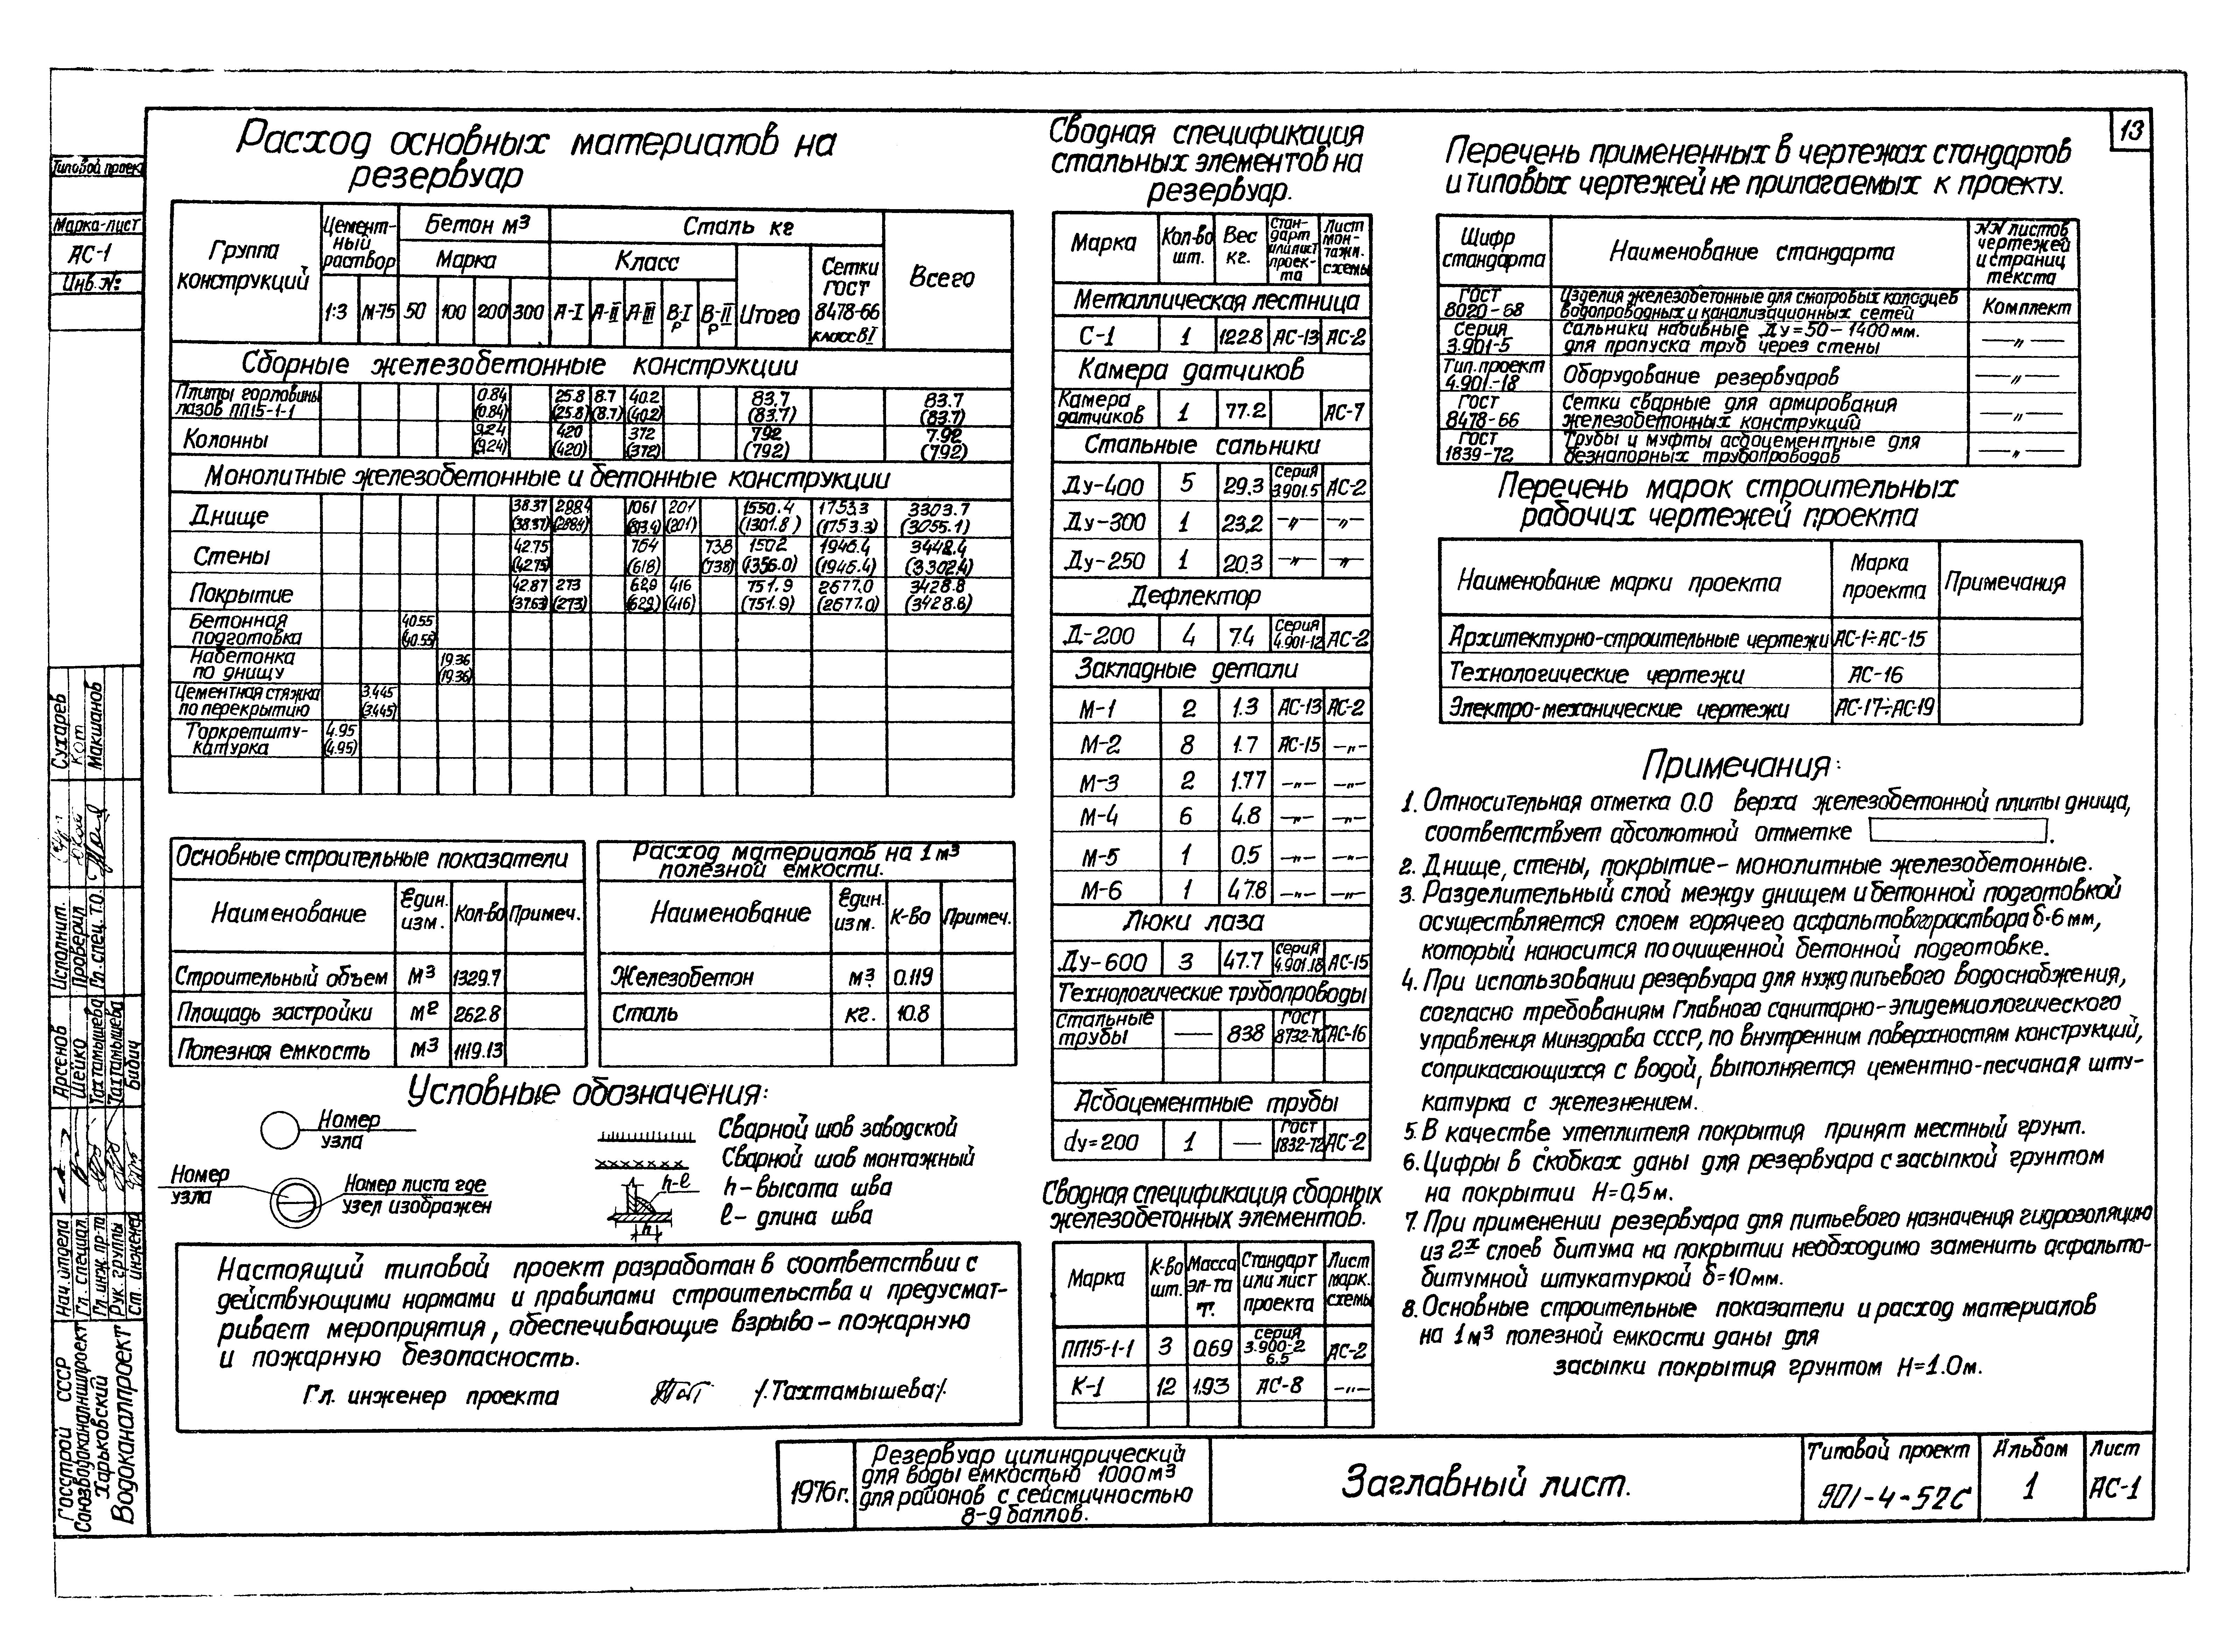 13
Типовой проект
Марка-лист
АС-1
Инв. №:
Расход основных материалов на
резервуар
Группа конструкций | Цементный раствор | Бетон м³ | Сталь кг | Всего
Марка | Класс | Итого | Сетки ГОСТ 8478-66 класс ВI
1:3 | М-75 | 50 | 100 | 200 | 300 | А-I | А-II | А-III | В-I р | В-II р
Сборные железобетонные конструкции
Плиты горловины лазов ПП15-1-1 | 0.84 (0.84) | 25.8 (25.8) | 8.7 (8.7) | 40.2 (40.2) | 83.7 (83.7) | 83.7 (83.7)
Колонны | 9.24 (9.24) | 420 (420) | 372 (372) | 792 (792) | 7.92 (792)
Монолитные железобетонные и бетонные конструкции
Днище | 38.37 (38.37) | 288.4 (288.4) | 1061 | 201 (201) | 1550.4 (1301.8) | 1753.3 (1753.3) | 3303.7 (3055.1)
Стены | 42.75 (42.75) | 764 (618) | 738 (738) | 1502 (1356.0) | 1946.4 (1946.4) | 3448.4 (3302.4)
Покрытие | 42.87 (37.63) | 273 (273) | 62.9 (62.9) | 416 (416) | 751.9 (751.9) | 2677.0 (2677.0) | 3428.8 (3428.8)
Бетонная подготовка | 40.55 (40.55)
Набетонка по днищу | 19.36 (19.36)
Цементная стяжка по перекрытию | 3.445 (3.445)
Торкретштукатурка | 4.95 (4.95)
Основные строительные показатели
Наименование | Един. изм. | Кол-во | Примеч.
Строительный объем | м³ | 1329.7
Площадь застройки | м² | 262.8
Полезная емкость | м³ | 1119.13
Расход материалов на 1м³
полезной емкости.
Наименование | Един. изм. | К-во | Примеч.
Железобетон | м³ | 0.119
Сталь | кг. | 10.8
Условные обозначения:
Номер
узла
Номер
узла
Номер листа где
узел изображен
Сварной шов заводской
Сварной шов монтажный
h-ℓ
h
h-высота шва
ℓ- длина шва
Настоящий типовой проект разработан в соответствии с
действующими нормами и правилами строительства и предусмат-
ривает мероприятия, обеспечивающие взрыво-пожарную
и пожарную безопасность.
Гл. инженер проекта /.Тахтамышева/.
Сводная спецификация
стальных элементов на
резервуар.
Марка | Кол-во шт. | Вес кг. | Стандарт или лист проекта | Лист монтажн. схемы
Металлическая лестница
С-1 | 1 | 122.8 | АС-13 | АС-2
Камера датчиков
Камера датчиков | 1 | 77.2 | АС-7
Стальные сальники
Ду-400 | 5 | 29.3 | Серия 3.901.5 | АС-2
Ду-300 | 1 | 23.2 | —"— | —"—
Ду-250 | 1 | 20.3 | —"— | —"—
Дефлектор
Д-200 | 4 | 7.4 | Серия 4.901-12 | АС-2
Закладные детали
М-1 | 2 | 1.3 | АС-13 | АС-2
М-2 | 8 | 1.7 | АС-15 | —"—
М-3 | 2 | 1.77 | —"— | —"—
М-4 | 6 | 4.8 | —"— | —"—
М-5 | 1 | 0.5 | —"— | —"—
М-6 | 1 | 4.78 | —"— | —"—
Люки лаза
Ду-600 | 3 | 47.7 | Серия 4.901.18 | АС-15
Технологические трубопроводы
Стальные трубы | — | 838 | ГОСТ 8732-70 | АС-16
Асбоцементные трубы
dy=200 | 1 | — | ГОСТ 1832-72 | АС-2
Сводная спецификация сборных
железобетонных элементов.
Марка | К-во шт. | Масса эл-та т. | Стандарт или лист проекта | Лист марк. схемы
ПП15-1-1 | 3 | 0.69 | серия 3.900-2 6.5 | АС-2
К-1 | 12 | 1.93 | АС-8 | —"—
Перечень примененных в чертежах стандартов
и типовых чертежей не прилагаемых к проекту.
Шифр стандарта | Наименование стандарта | NN листов чертежей и страниц текста
ГОСТ 8020-68 | Изделия железобетонные для смотровых колодцев водопроводных и канализационных сетей | Комплект
Серия 3.901-5 | Сальники набивные Ду=50-1400мм. для пропуска труб через стены | —"—
Тип. проект 4.901-18 | Оборудование резервуаров | —"—
ГОСТ 8478-66 | Сетки сварные для армирования железобетонных конструкций | —"—
ГОСТ 1839-72 | Трубы и муфты асбоцементные для безнапорных трубопроводов | —"—
Перечень марок строительных
рабочих чертежей проекта
Наименование марки проекта | Марка проекта | Примечания
Архитектурно-строительные чертежи | АС-1÷АС-15
Технологические чертежи | АС-16
Электро-механические чертежи | АС-17÷АС-19
Примечания:
1. Относительная отметка 0.0 верха железобетонной плиты днища,
соответствует абсолютной отметке .
2. Днище, стены, покрытие- монолитные железобетонные.
3. Разделительный слой между днищем и бетонной подготовкой
осуществляется слоем горячего асфальтового раствора δ-6мм,
который наносится по очищенной бетонной подготовке.
4. При использовании резервуара для нужд питьевого водоснабжения,
согласно требованиям Главного санитарно-эпидемиологического
управления Минздрава СССР, по внутренним поверхностям конструкций,
соприкасающихся с водой, выполняется цементно-песчаная шту-
катурка с железнением.
5. В качестве утеплителя покрытия принят местный грунт.
6. Цифры в скобках даны для резервуара с засыпкой грунтом
на покрытии Н=0,5м.
7. При применении резервуара для питьевого назначения гидроизоляцию
из 2х слоев битума на покрытии необходимо заменить асфальто-
битумной штукатуркой δ=10мм.
8. Основные строительные показатели и расход материалов
на 1м³ полезной емкости даны для
засыпки покрытия грунтом Н=1.0м.
1976г.
Резервуар цилиндрический
для воды емкостью 1000м³
для районов с сейсмичностью
8-9 баллов.
Заглавный лист.
Типовой проект
901-4-52С
Альбом
1
Лист
АС-1
Госстрой СССР
Союзводоканалниипроект
Харьковский
Водоканалпроект
Нач. отдела Арсенов
Гл. специал. Шейко
Гл. инж. пр-та Тахтамышева
Рук. группы Тахтамышева
Ст. инженер Бабич
Исполнит. Сухарев
Проверил Кот
Гл. спец. Т.О. Макшанов